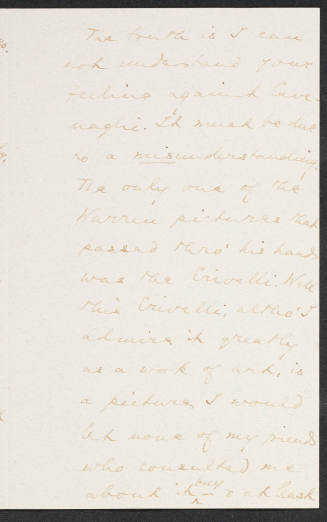 The truth is I can
not understand your
feeling against Cave-
naghi. It must be due
to a misunderstanding.
The only one of the
Warren pictures that
passed thro' his hands
was the Crivelli. Well
this Crivelli, altho' I
admire it greatly
as a work of art, is
a picture I would
let none of my friends
who consulted me
about it buy, & at least